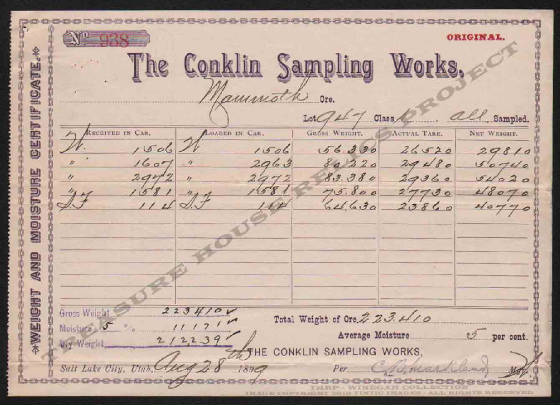 No 938
ORIGINAL.
The Conklin Sampling Works.
WEIGHT AND MOISTURE CERTIFICATE.
Mammoth Ore.
Lot 947 Class All Sampled.
RECEIVED IN CAR. LOADED IN CAR. GROSS WEIGHT. ACTUAL TARE. NET WEIGHT.
W. 1506 W 1506 56330 26520 29810
" 1607 " 2963 80220 29480 50740
" 2972 " 2972 83380 29360 54020
" 1581 " 1581 75800 27730 48070
S F 114 S F 114 64630 23860 40770
Gross Weight 223410
Total Weight of Ore 223.410
Moisture 5 % 11171
Average Moisture 5 per cent.
Dry Weight 212239
THE CONKLIN SAMPLING WORKS,
Salt Lake City, Utah, Aug 28th 1899
Per Markland
TREASURE HOUSE RELICS PROJECT
THRP - WINEGAR COLLECTION
IMAGE COPYRIGHT 2010 TINTIC IMAGES - ALL RIGHTS RESERVED